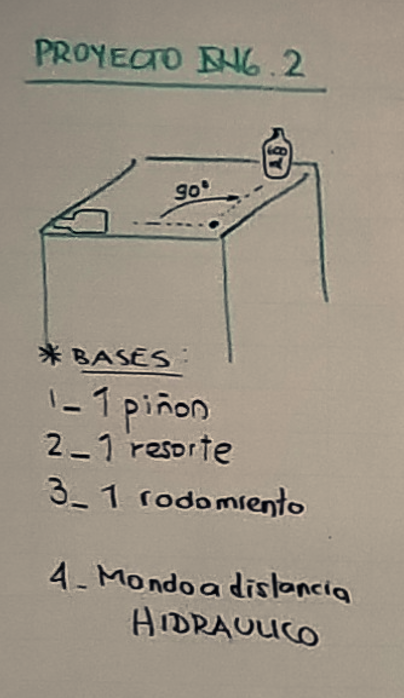 PROYECTO ING. 2
600
ml
90°
* BASES:
1_ 1 piñon
2_ 1 resorte
3_ 1 rodamiento
4_ Mando a distancia
HIDRAULICO